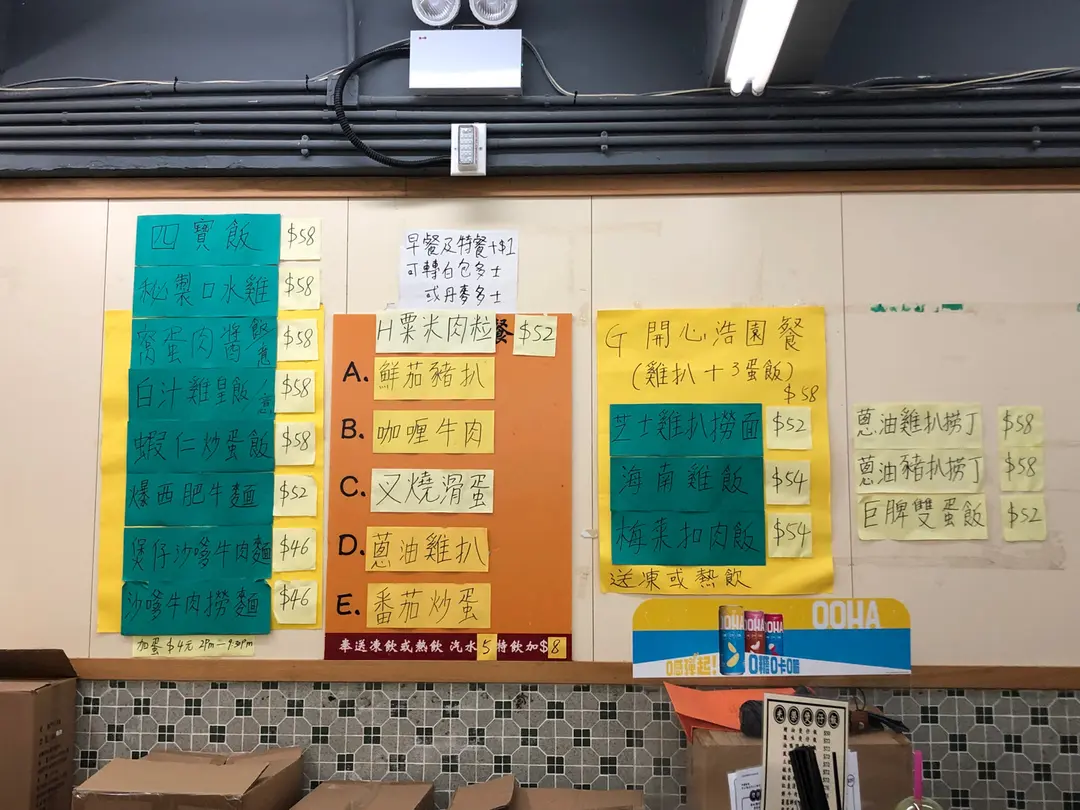 四寶飯 $58
秘製口水雞 $58
窩蛋肉醬飯/意 $58
白汁雞皇飯/意 $58
蝦仁炒蛋飯 $58
爆西肥牛麵 $52
煲仔沙嗲牛肉麵 $46
沙嗲牛肉撈麵 $46
加蛋$4元 2pm-9:30pm
早餐及特餐+$1
可轉白包多士
或丹麥多士
H粟米肉粒 餐 $52
A. 鮮茄豬扒
B. 咖喱牛肉
C. 叉燒滑蛋
D. 蔥油雞扒
E. 番茄炒蛋
奉送凍飲或熱飲 汽水5特飲加$8
G 開心浩園餐
(雞扒+3蛋飯)
$58
芝士雞扒撈面 $52
海南雞飯 $54
梅菜扣肉飯 $54
送凍或熱飲
蔥油雞扒撈丁 $58
蔥油豬扒撈丁 $58
巨脾雙蛋飯 $52
OOHA
OOHA OOHA OOHA
0糖0卡0脂